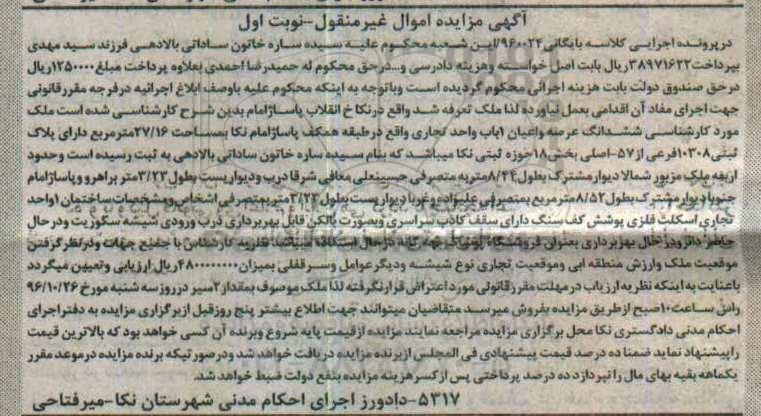 آگهی مزایده اموال غیرمنقول-نوبت اول
در پرونده اجرایی کلاسه بایگانی ۹۶۰۰۲۴/این شعبه محکوم علیه سیده ساره خاتون ساداتی بالادهی فرزند سید مهدی
بپرداخت ۳۸۹۷۱۶۲۲ ریال بابت اصل خواسته وهزینه دادرسی و...درحق محکوم له حمیدرضا احمدی بعلاوه پرداخت مبلغ ۱۲۵۰۰۰۰ ریال
درحق صندوق دولت بابت هزینه اجرائی محکوم گردیده است وباتوجه به اینکه محکوم علیه باوصف ابلاغ اجرائیه درفرجه مقررقانونی
جهت اجرای مفاد آن اقدامی بعمل نیاورده لذا ملک تعرفه شد واقع درنکا خ انقلاب پاساژامام بدین شرح کارشناسی شده است ملک
مورد کارشناسی ششدانگ عرصه واعیان ۱باب واحد تجاری واقع درطبقه همکف پاساژامام نکا بمساحت ۲۷/۱۶مترمربع دارای پلاک
ثبتی ۱۰۳۰۸فرعی از۵۷-اصلی بخش ۱۸حوزه ثبتی نکا میباشد که بنام سیده ساره خاتون ساداتی بالادهی به ثبت رسیده است وحدود
اربعه ملک مزبور شمالا دیوار مشترک بطول۸/۴۴متربه متصرفی حسینعلی معافی شرقا درب ودیواریست بطول۳/۲۳متر براهرو وپاساژامام
جنوبا دیوار مشترک بطول۸/۵۲مترمربع بمتصرفی علیزاده وغربا دیواریست بطول۳/۲۳متربمتصرفی اشخاص ومشخصات ساختمان ۱واحد
تجاری اسکلت فلزی پوشش کف سنگ دارای سقف کاذب سراسری وبصورت بالکن قابل بهره برداری درب ورودی شیشه سکوریت ودرحال
حاضر دائر ودرحال بهره برداری بعنوان فروشگاه درحال استفاده میباشد نظریه کارشناس با جمیع جهات ودرنظرگرفتن
موقعیت ملک وارزش منطقه ای وموقعیت تجاری نوع شیشه ودیگرعوامل وسرقفلی بمیزان ۴۸۰۰۰۰۰۰۰۰ریال ارزیابی وتعیین میگردد
باعنایت به اینکه نظریه ارزیاب درمهلت مقررقانونی مورد اعتراض قرارنگرفته لذا ملک موصوف بمقدار۲سیر درروزسه شنبه مورخ ۹۶/۱۰/۲۶
راس ساعت۱۰صبح ازطریق مزایده بفروش میرسد متقاضیان میتوانند جهت اطلاع بیشتر پنج روزقبل ازبرگزاری مزایده به دفتراجرای
احکام مدنی دادگستری نکا محل برگزاری مزایده مراجعه نمایند مزایده ازقیمت پایه شروع وبرنده آن کسی خواهد بود که بالاترین قیمت
راپیشنهاد نماید ضمنا ده درصد قیمت پیشنهادی فی المجلس ازبرنده مزایده دریافت خواهد شد ودرصورتیکه برنده مزایده درموعد مقرر
یکماهه بقیه بهای مال را نپردازد ده درصد پرداختی پس ازکسر هزینه مزایده بنفع دولت ضبط خواهد شد.
۵۳۱۷-دادورز اجرای احکام مدنی شهرستان نکا-میرفتاحی